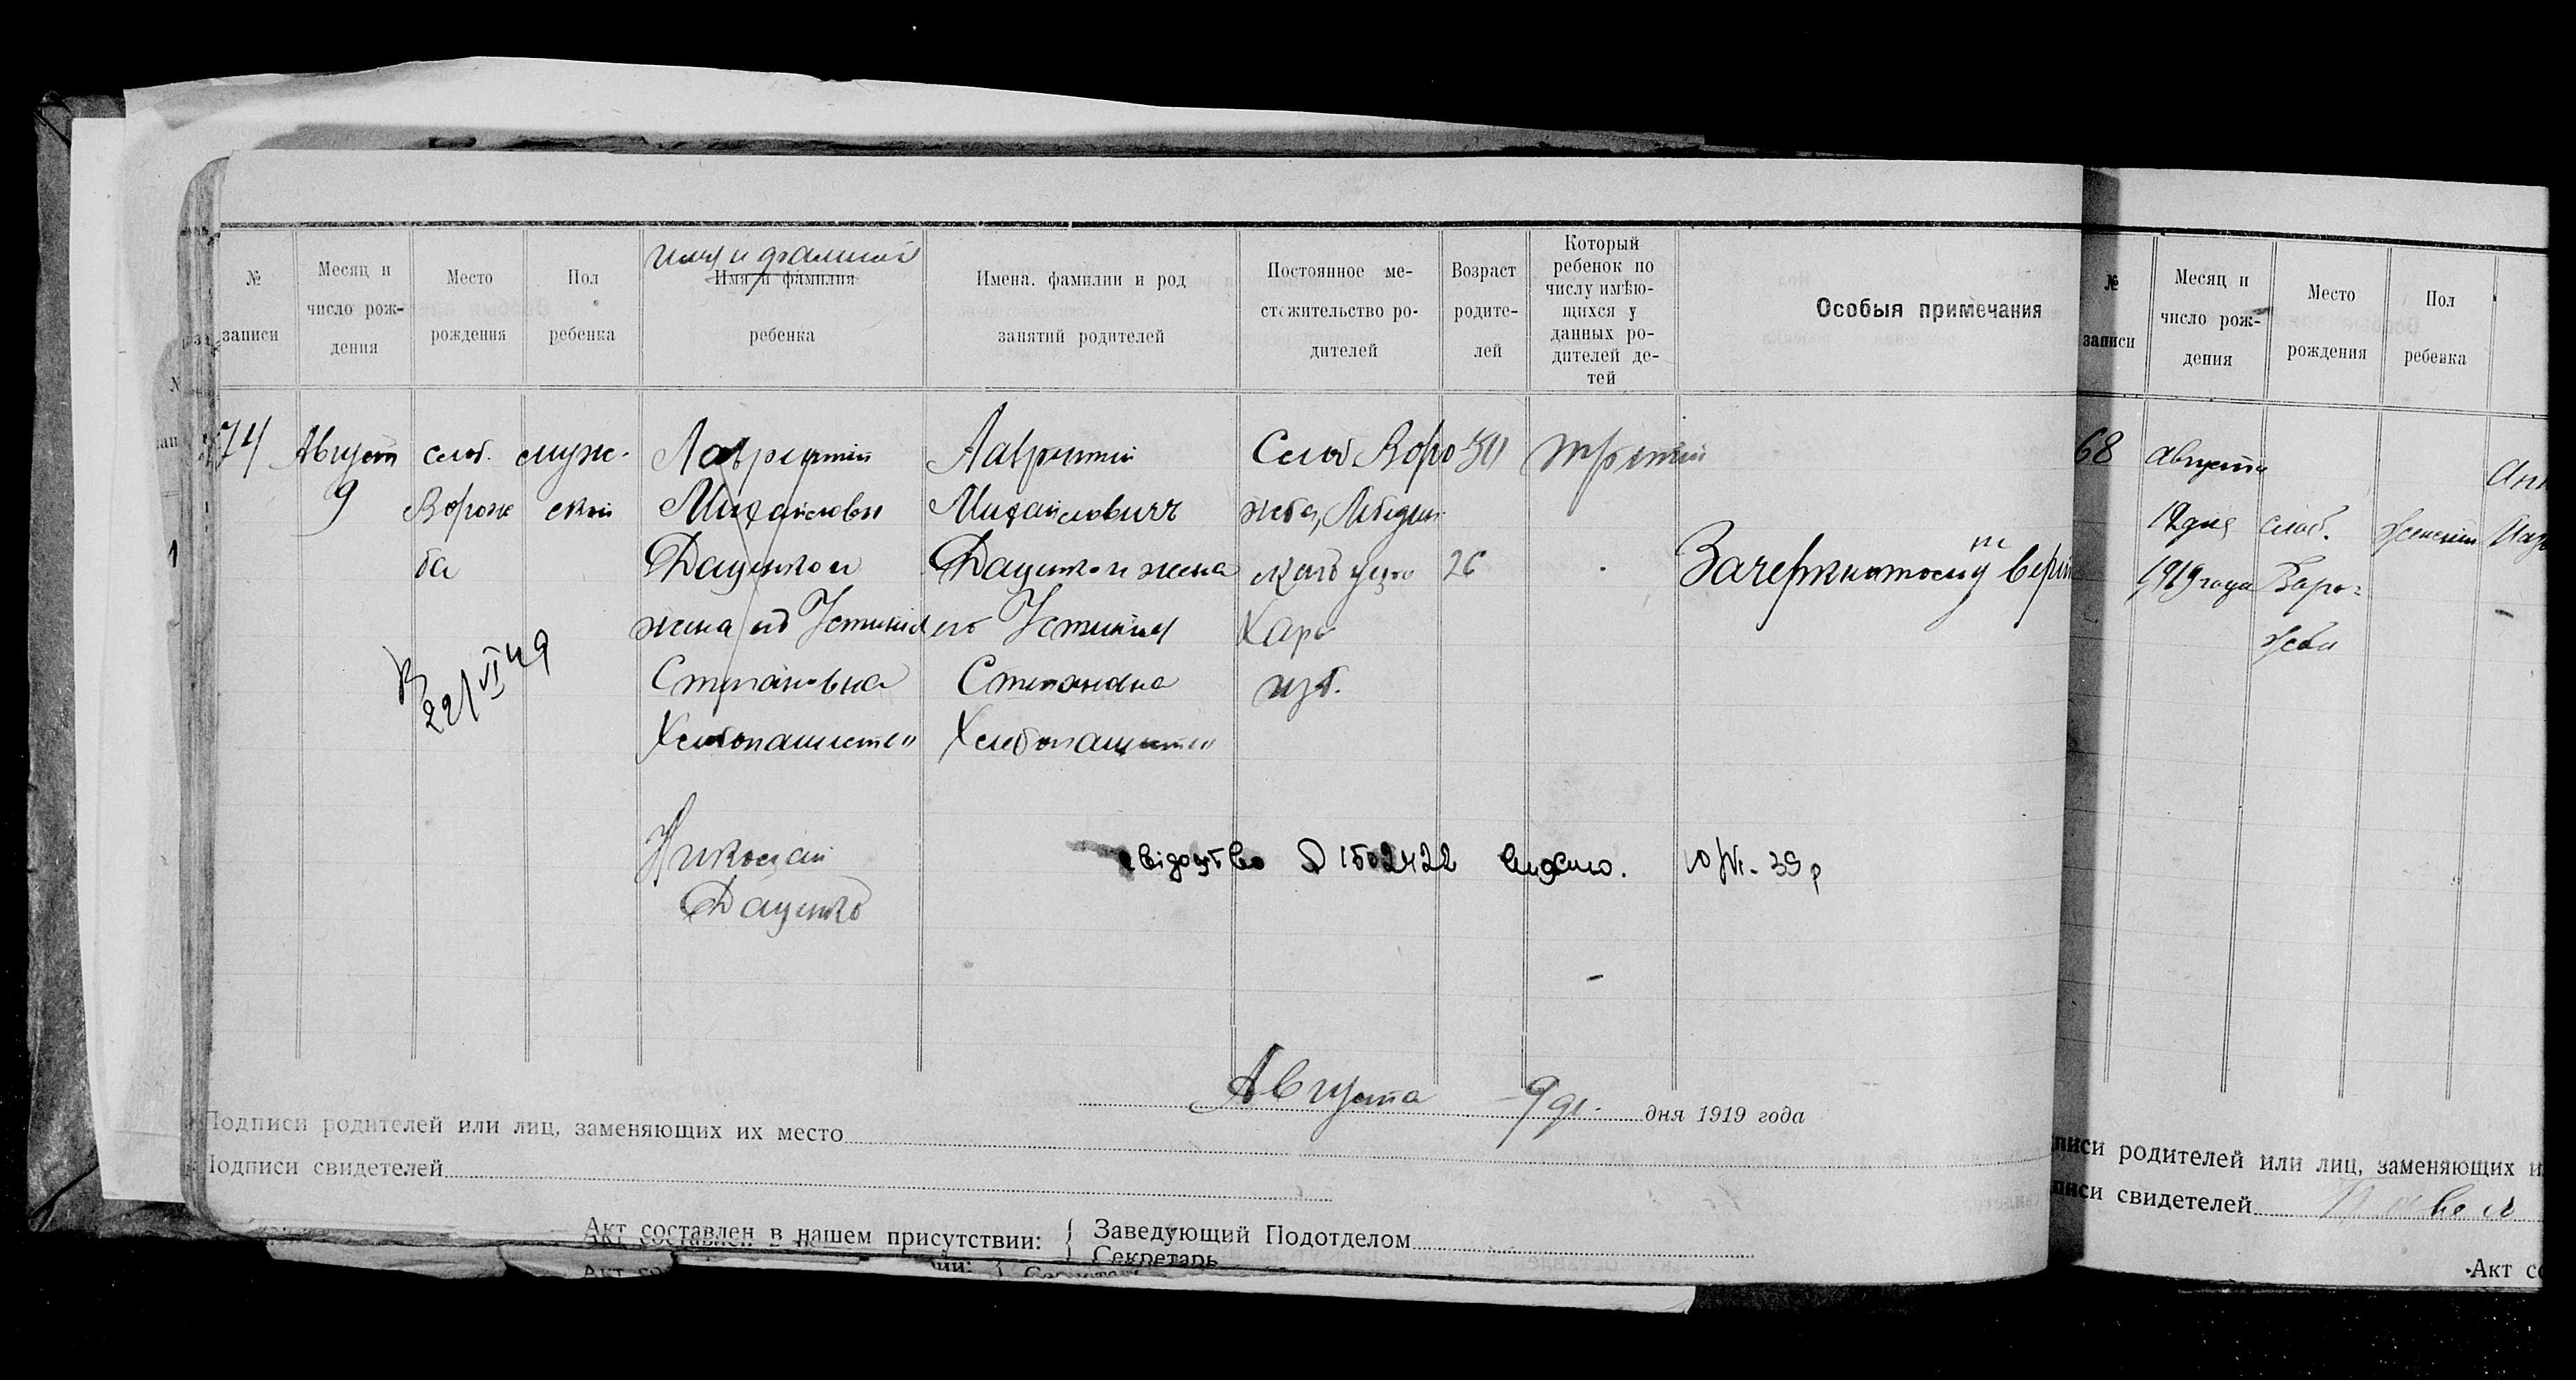 имя и фамилия
№
записи
Месяц и
число рож-
дения
Место
рождения
Пол
ребенка
Имя и фамилия
ребенка
Имена. фамилии и род
занятий родителей
Постоянное ме-
стожительство ро-
дителей
Возраст
родите-
лей
Который
ребенок по
числу имѣю-
щихся у
данных ро-
дителей де-
тей
Особыя примечания
74
Август
9
слоб.
Ворож
ба
муж-
ской
Лаврентий
Михайлович
Даценко и
жена его Устиния
Степановна
Хлебопашество
Лаврентий
Михайлович
Даценко и жена
его Устиния
Степановна
Хлебопашество
Слоб. Воро
жба, Лебедин
ского уезда
Харь
губ.
30
26
третий
Зачеркнутому верить
22/VI 49
Николай
Даценко
свідоцтво № 1502422 видано. 10/VI-39 р
Августа 9 дня 1919 года
Подписи родителей или лиц, заменяющих их место
Подписи свидетелей
Акт составлен в нашем присутствии:
Заведующий Подотделом
Секретарь
№
записи
Месяц и
число рож-
дения
Место
рождения
Пол
ребенка
68
августа
12 дня
1919 года
слоб.
Воро-
жба
женский
писи родителей или лиц, заменяющих и
писи свидетелей Павел
Акт со